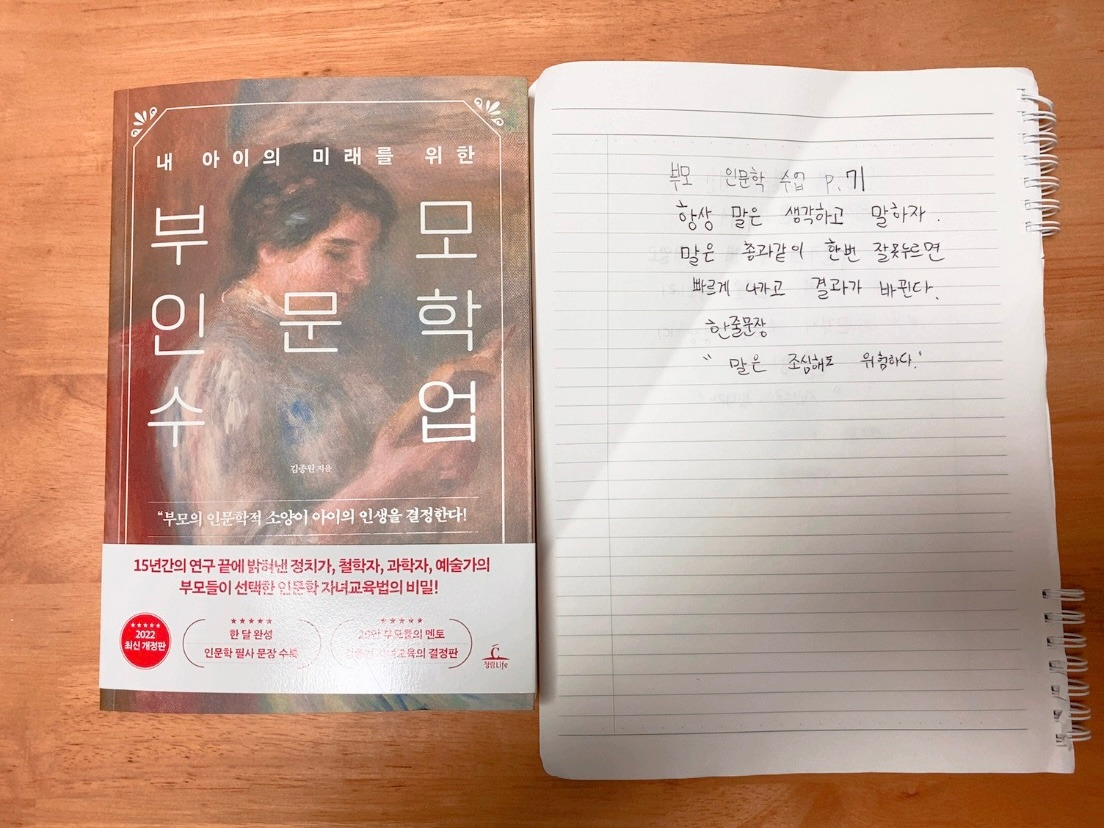 내 아이의 미래를 위한
부모
인문학
수업
김종원 지음
“부모의 인문학적 소양이 아이의 인생을 결정한다!
15년간의 연구 끝에 밝혀낸 정치가, 철학자, 과학자, 예술가의
부모들이 선택한 인문학 자녀교육법의 비밀!
2022
최신 개정판
한 달 완성
인문학 필사 문장 수록
부모들의 멘토
자녀교육의 결정판
청림Life
부모 인문학 수업 p.71
항상 말은 생각하고 말하자.
말은 총과같이 한번 잘못누르면
빠르게 나가고 결과가 바뀐다.
한줄문장
“ 말은 조심해도 위험하다.’